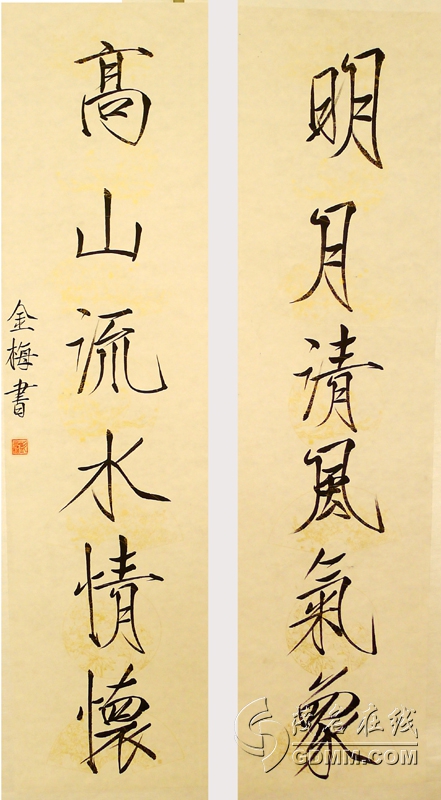 明月清風氣象
高山流水情懷
金梅書
GOMM.COM